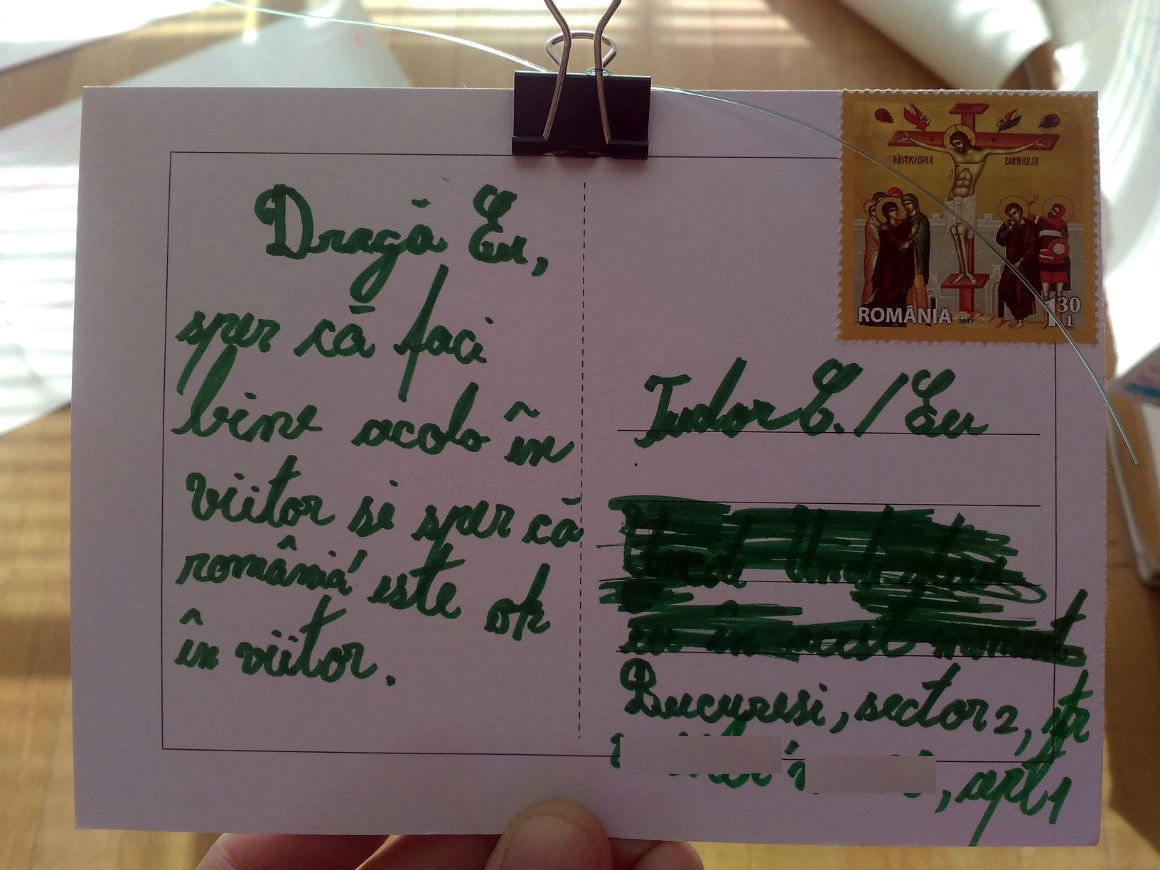 Dragă Eu,
sper că faci
bine acolo în
viitor si sper că
româniá este ok
în viitor.
RĂSTIGNIREA DOMNULUI
ROMÂNIA 2017
1 30
L
Tudor E. / Eu
eu în acest moment
Bucuresi, sector 2, str
, apt 1